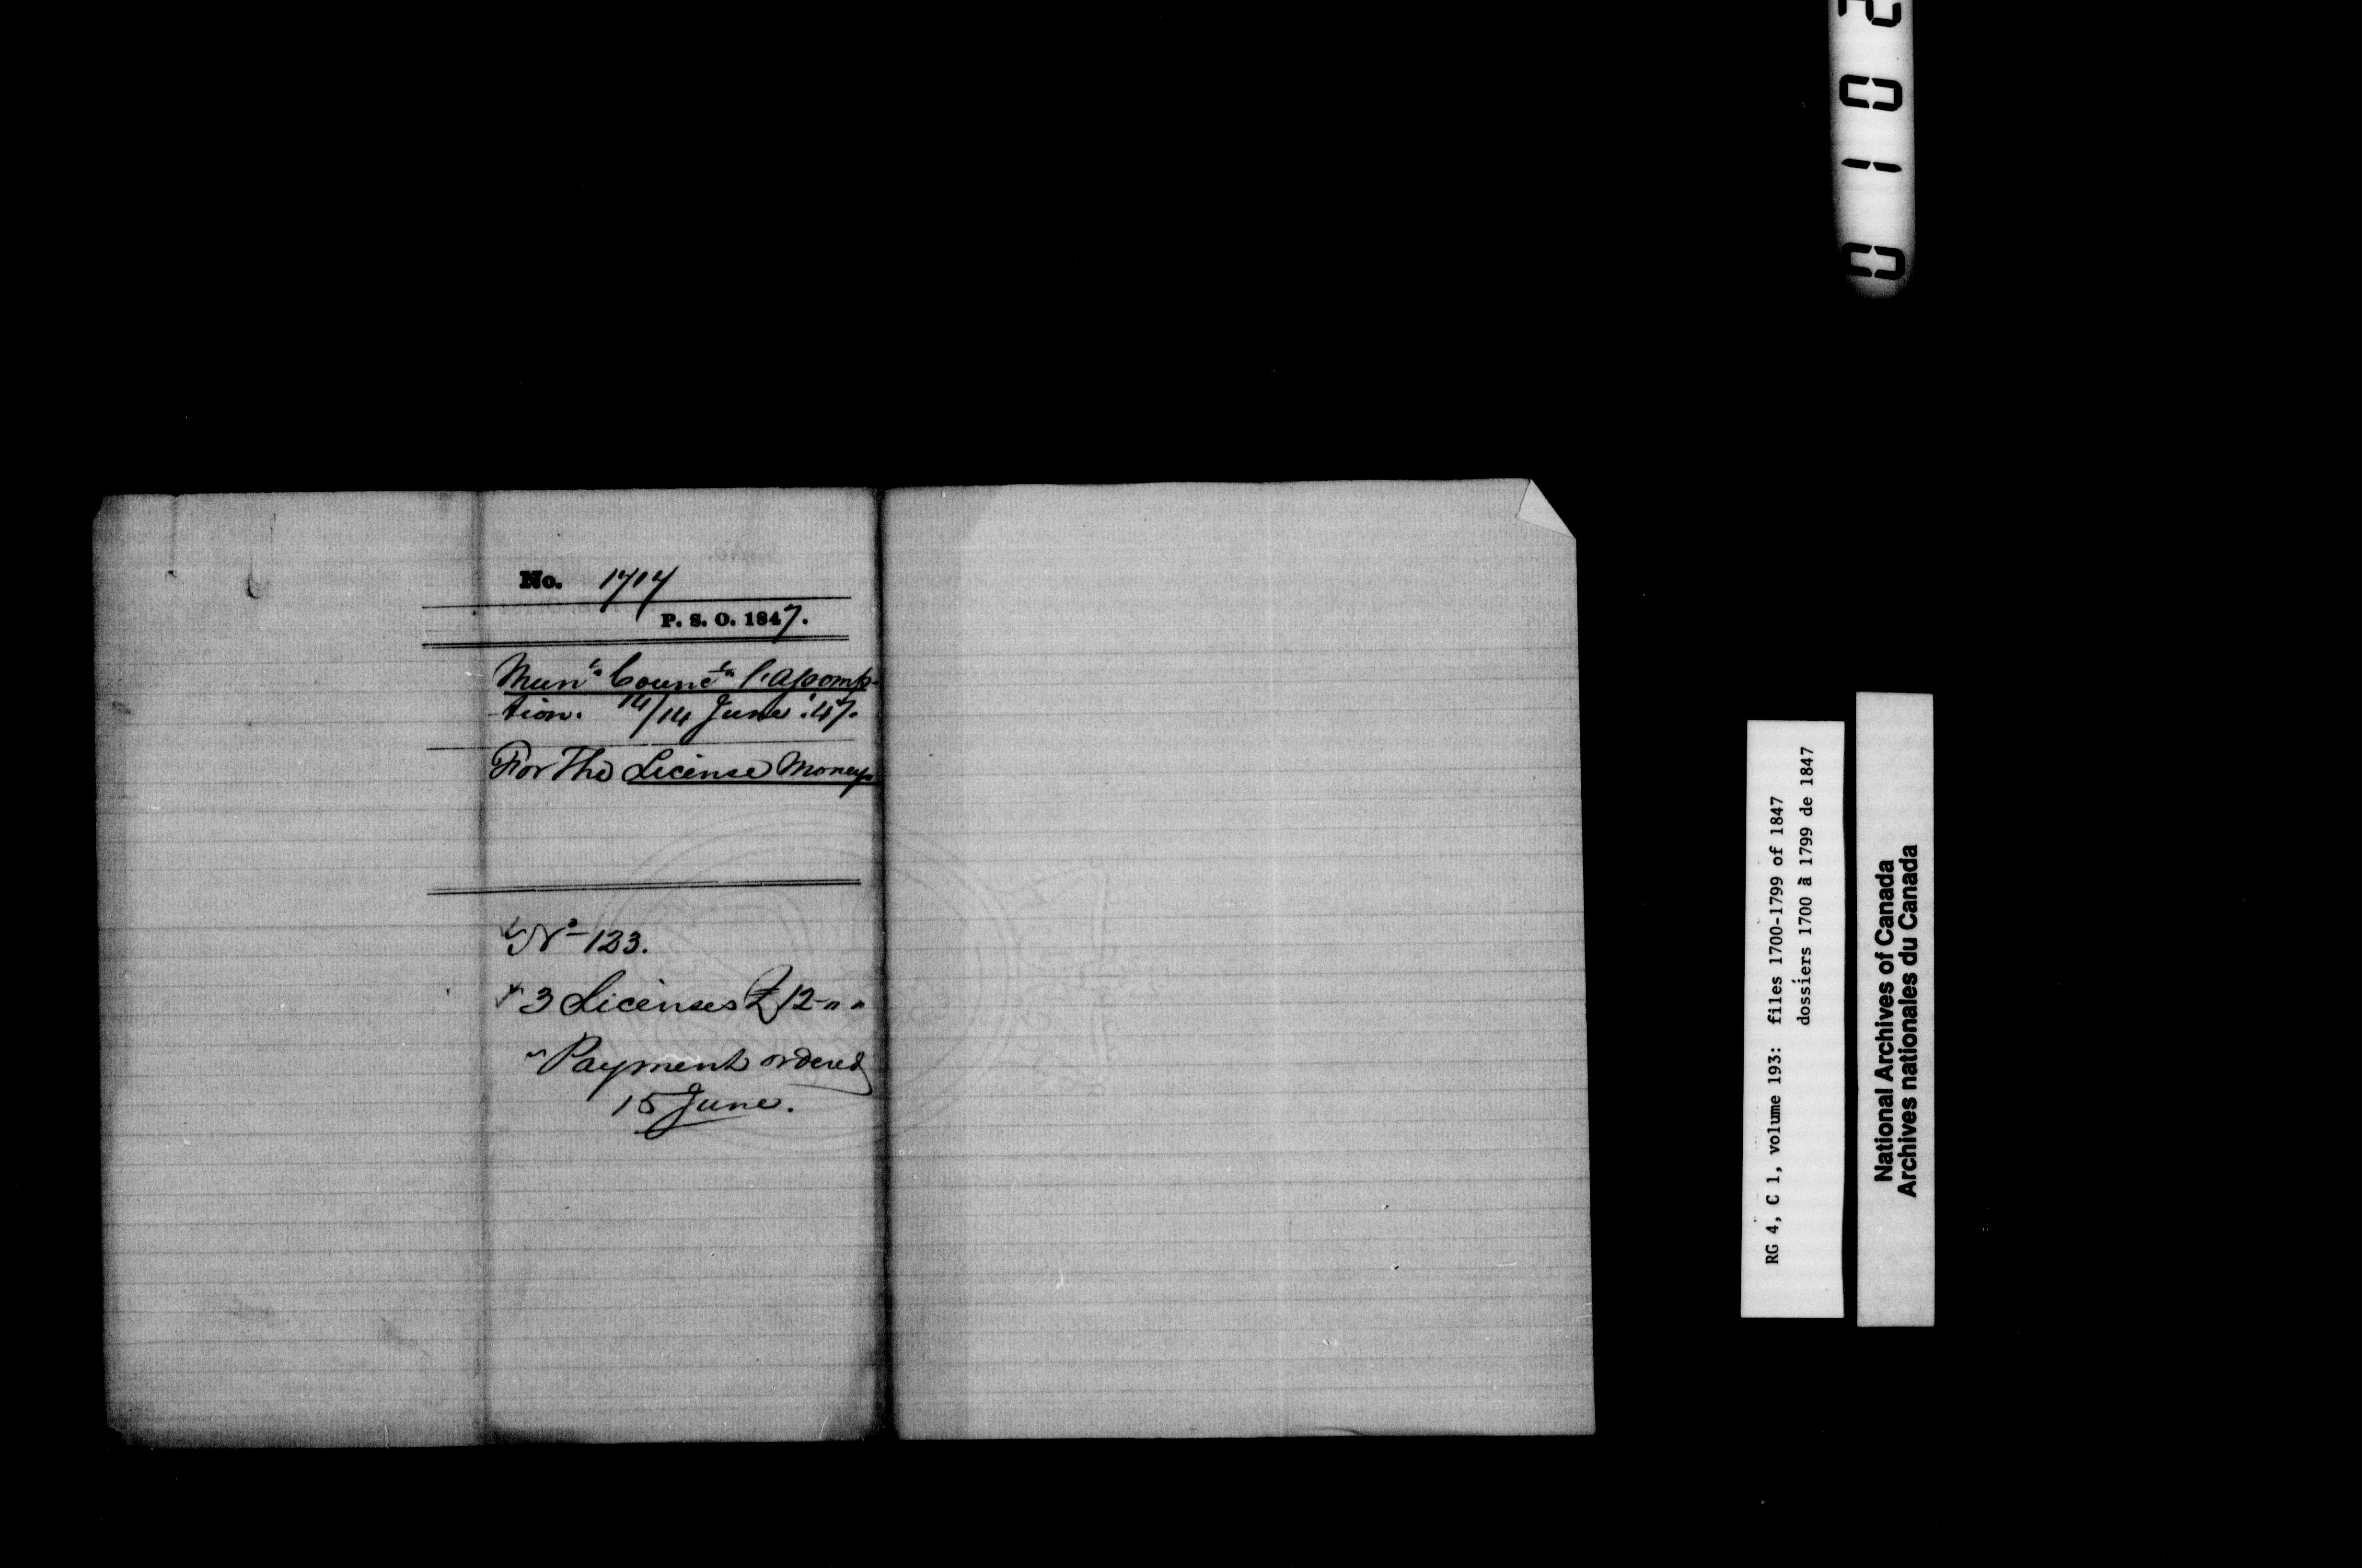 No. 1717
P. S. O. 1847.
Mun^l. Counc^l. L'Assomp-
tion. 14/14 June '47.
For The License Moneys
N^o 123.
3 Licenses £12 " "
Payment ordered
15 June.
RG 4, C 1, volume 193: files 1700-1799 of 1847
dossiers 1700 à 1799 de 1847
National Archives of Canada
Archives nationales du Canada
0 1 0 2